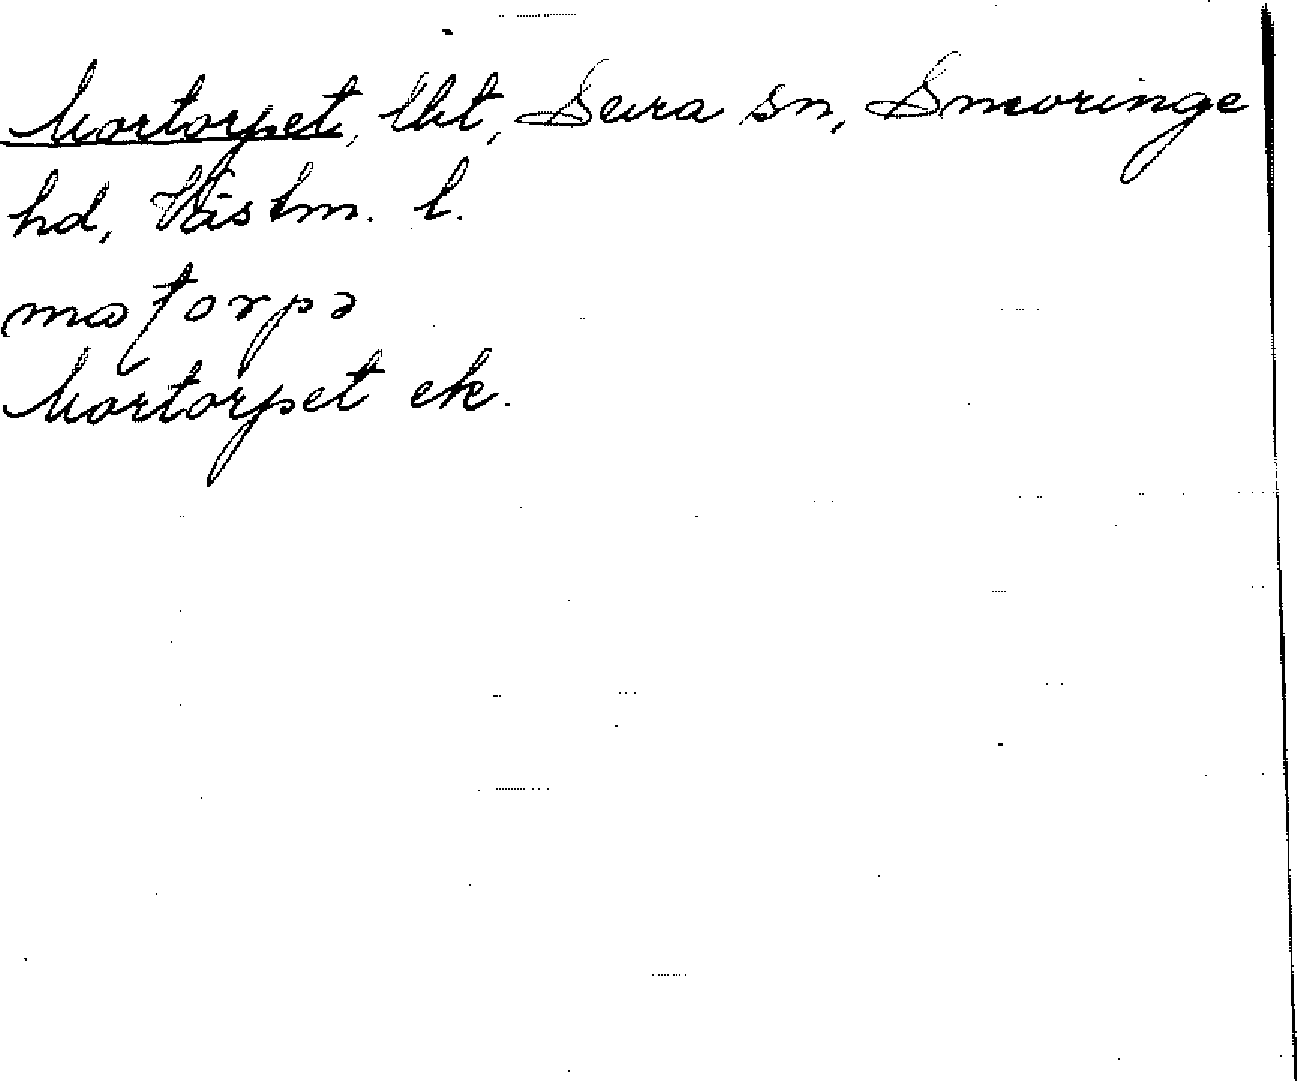 Mortorpet, lht, Sura sn, Snevringe
hd, Västm. l.
Mortorpet ek.